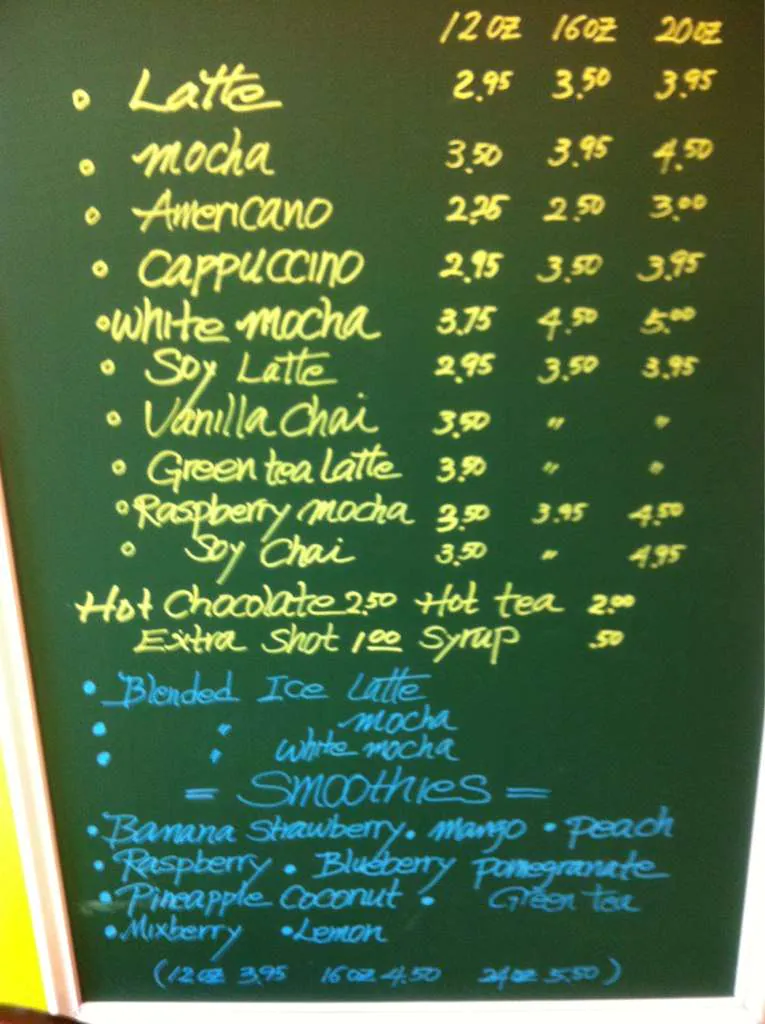 12 oz 16 oz 20 oz
• Latte 2.95 3.50 3.95
• mocha 3.50 3.95 4.50
• Americano 2.25 2.50 3.00
• CAPPUCCINO 2.95 3.50 3.95
• white mocha 3.75 4.50 5.00
• Soy Latte 2.95 3.50 3.95
• Vanilla Chai 3.50 " "
• Green tea Latte 3.50 " "
• Raspberry mocha 3.50 3.95 4.50
• Soy Chai 3.50 " 4.95
Hot Chocolate 2.50 Hot tea 2.00
Extra Shot 1.00 Syrup .50
• Blended Ice Latte
• " mocha
• " white mocha
= Smoothies =
• Banana Strawberry • mango • Peach
• Raspberry • Blueberry pomegranate
• Pineapple Coconut • Green tea
• Mixberry • Lemon
(12 oz 3.95 16 oz 4.50 24 oz 5.50)